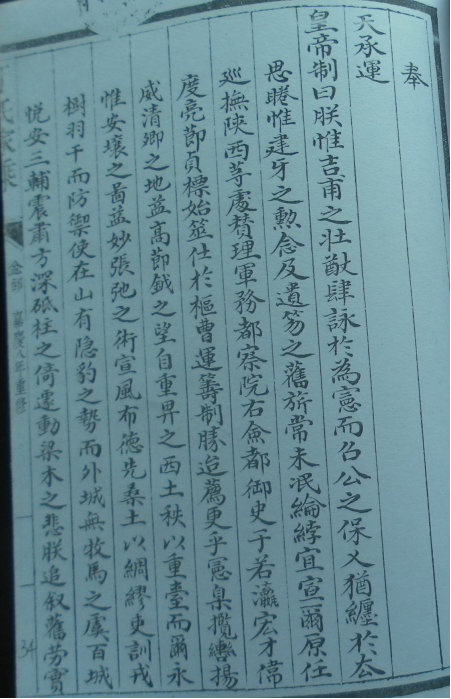 奉
天承運
皇帝制曰朕惟吉甫之壯猷肆詠於為憲而召公之保乂猶纏於
思睠惟建牙之勲念及遺笏之舊旂常未泯綸綍宜宣爾原任
巡撫陝西等處賛理軍務都察院右僉都御史于若瀛宏才偉
度亮節貞標始筮仕於樞曹運籌制勝迨薦更乎憲臬攬轡揚
威清卿之地益高節鉞之望自重畀之西土秩以重臺而爾永
惟安壤之啚益妙張弛之術宣風布德先桑土以綢繆吏訓戎
樹羽干而防禦使在山有隐豹之勢而外城無牧馬之虞百城
悅安三輔震肅方深砥柱之倚遽動梁木之悲朕追叙舊勞實
氏家乘
嘉慶八年重修
34